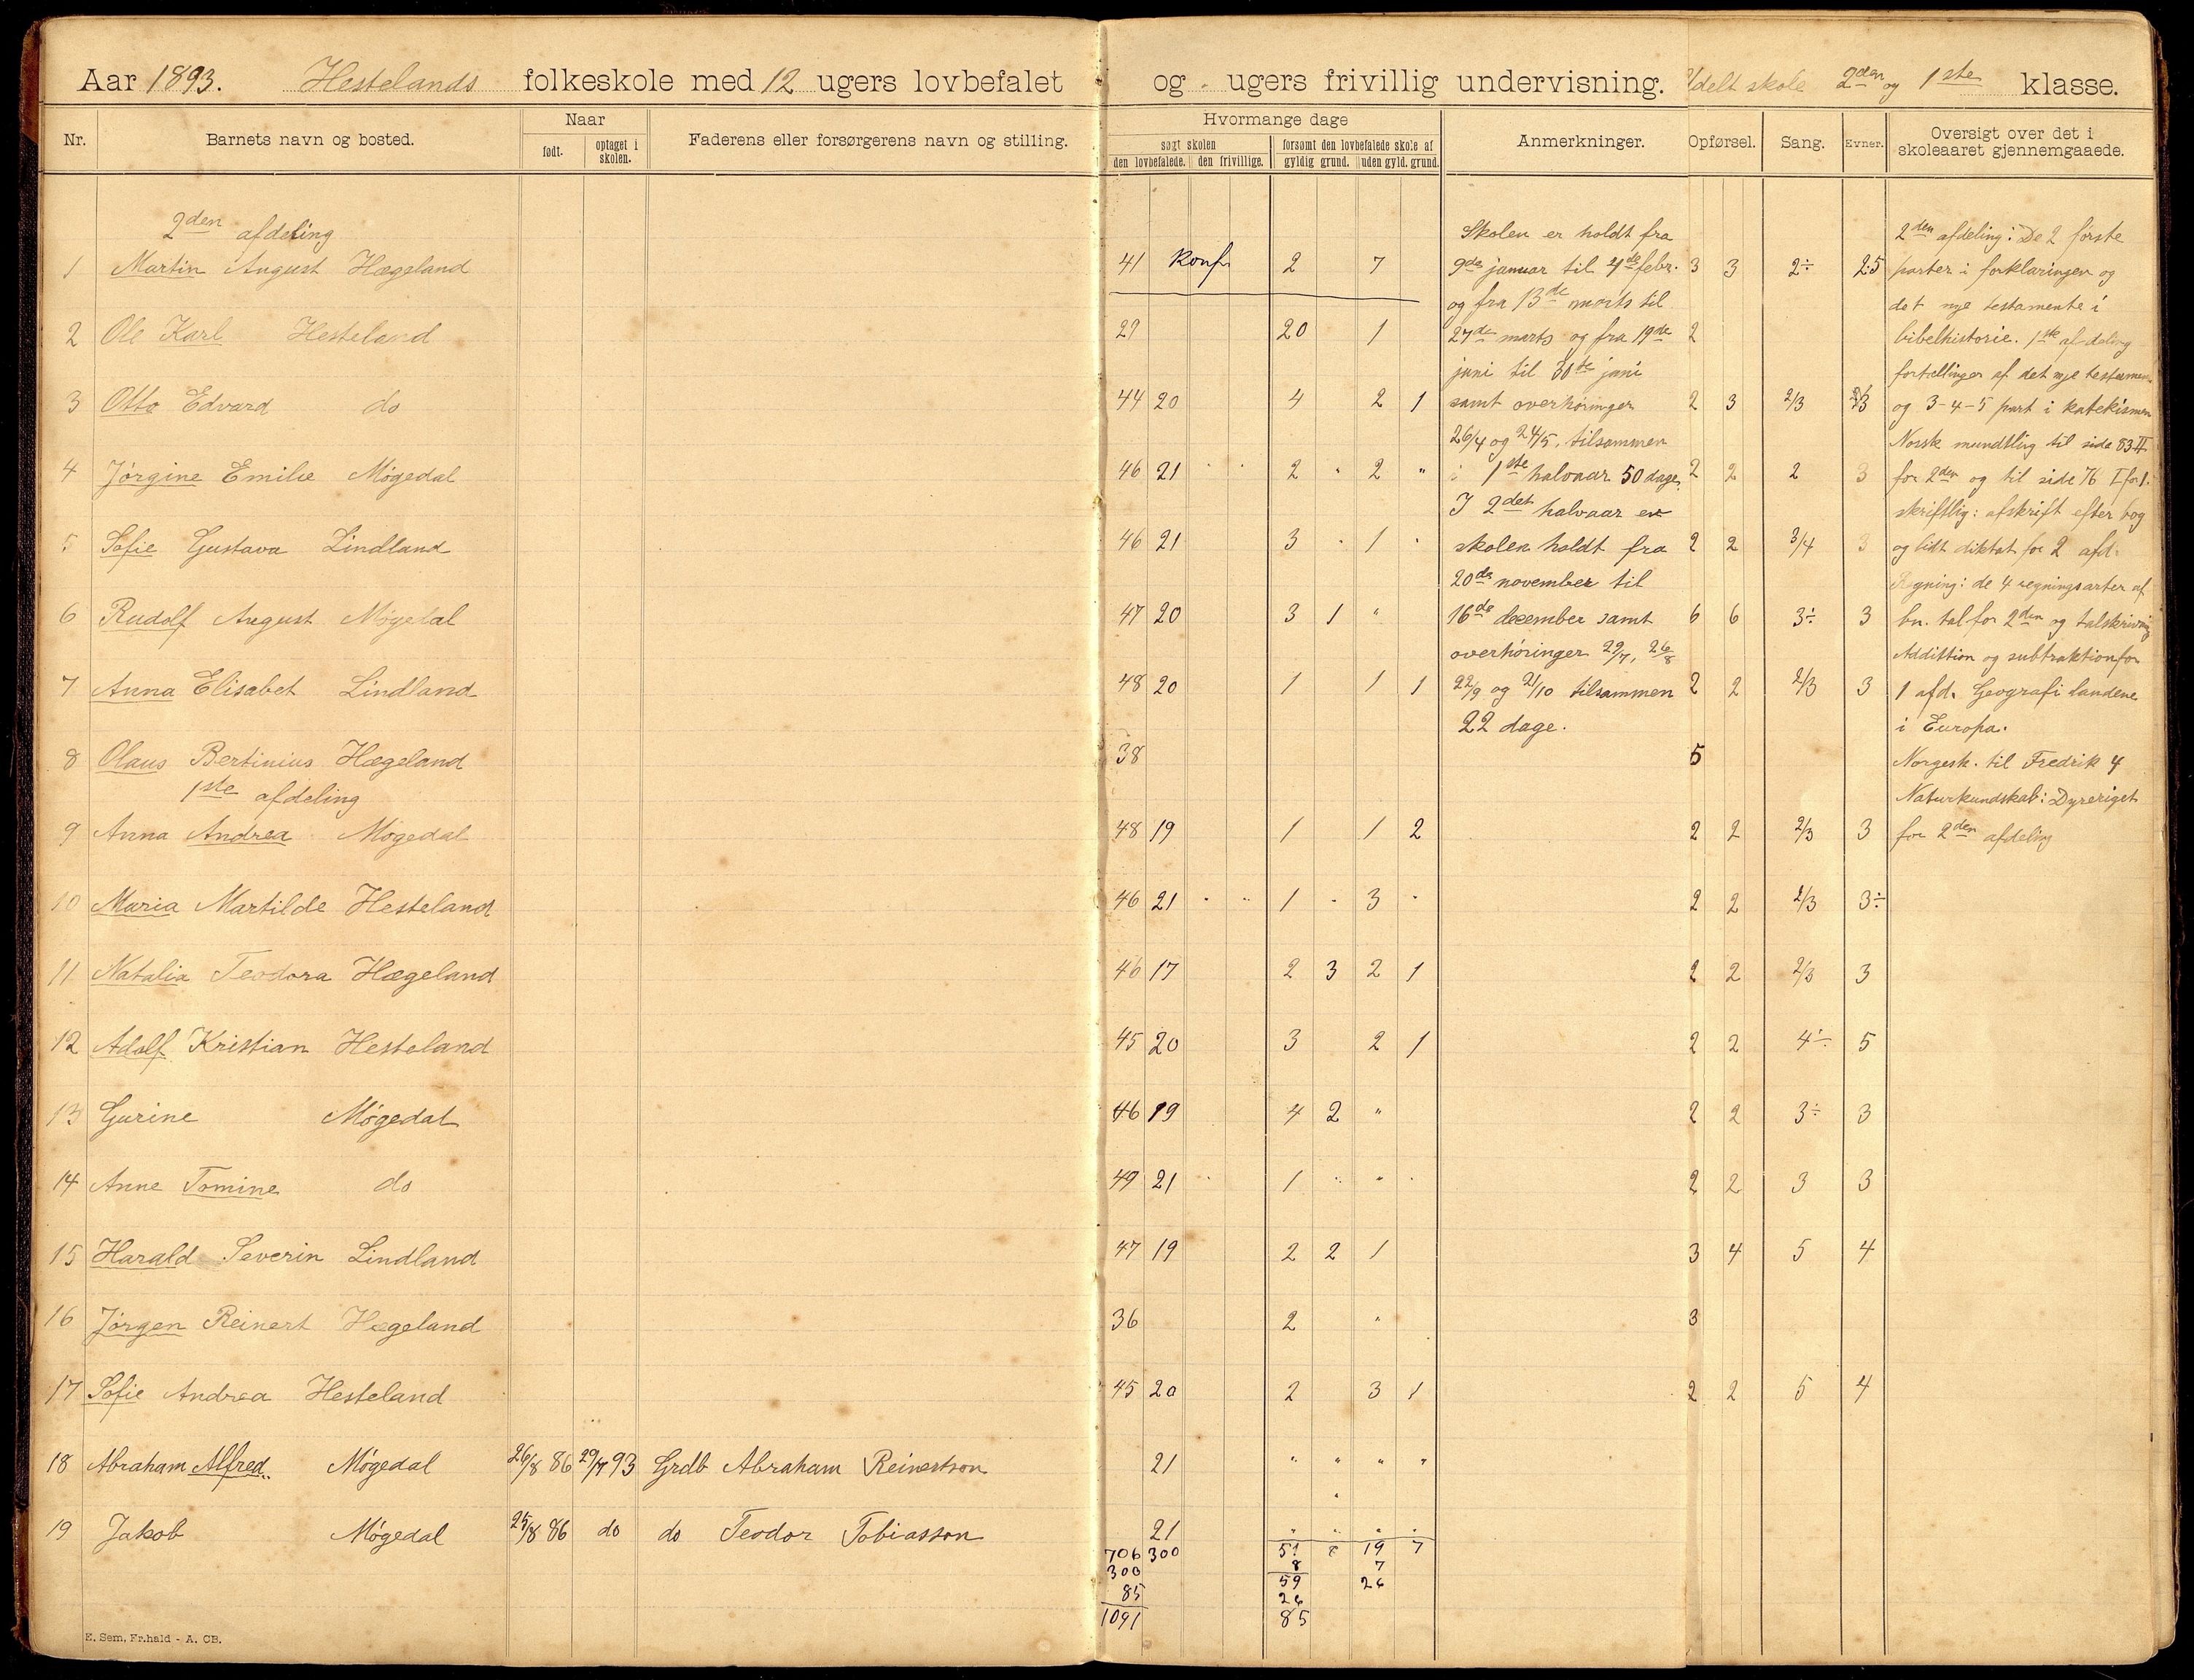 Aar 1893. Hestelands folkeskole med 12 ugers lovbefalet og - ugers frivillig undervisning. Udelt skole 2den og 1ste klasse.
Nr. Barnets navn og bosted. Naar Faderens eller forsørgerens navn og stilling. Hvormange dage Anmerkninger. Opførsel. Sang. Evner. Oversigt over det i skoleaaret gjennemgaaede.
født. optaget i skolen. søgt skolen forsømt den lovbefalede skole af
den lovbefalede. den frivillige. gyldig grund. uden gyld. grund.
2den afdeling
1 Martin August Hægeland 41 Konf. 2 7 3 3 2÷ 2.5
2 Ole Karl Hesteland 29 20 1 2
3 Otto Edvard do 44 20 4 2 1 2 3 2/3
4 Jørgine Emilie Møgedal 46 21 " " 2 " 2 " 2 2 2 3
5 Sofie Gustava Lindland 46 21 3 " 1 " 2 2 3/4 3
6 Rudolf August Møgedal 47 20 3 1 " 6 6 3÷ 3
7 Anna Elisabet Lindland 48 20 1 1 1 2 2 2/3 3
8 Olaus Bertinius Hægeland 38 5
1ste afdeling
9 Anna Andrea Møgedal 48 19 1 1 2 2 2 2/3 3
10 Maria Martilde Hesteland 46 21 " " 1 " 3 " 2 2 2/3 3÷
11 Natalia Teodora Hægeland 46 17 2 3 2 1 2 2 2/3 3
12 Adolf Kristian Hesteland 45 20 3 2 1 2 2 4÷ 5
13 Gurine Møgedal 46 19 4 2 " 2 2 3÷ 3
14 Anne Tomine do 49 21 " 1 " " " 2 2 3 3
15 Harald Severin Lindland 47 19 2 2 1 3 4 5 4
16 Jørgen Reinert Hægeland 36 2 " 3
17 Sofie Andrea Hesteland 45 20 2 3 1 2 2 5 4
18 Abraham Alfred Møgedal 26/8 86 29/7 93 Grdb Abraham Reinertson 21 " " " "
19 Jakob Møgedal 25/8 86 do do Teodor Tobiasson 21 " " " "
706 300 51 8 19 7
300 8 7
85 59 26
1091 26
85
Skolen er holdt fra
9de januar til 4de febr.
og fra 13de marts til
27de marts og fra 19de
juni til 30te juni
samt overhøringer
26/4 og 24/5. tilsammen
i 1ste halvaar 50 dage.
I 2det halvaar er
skolen holdt fra
20de november til
16de december samt
overhøringer 29/7, 26/8
22/9 og 21/10 tilsammen
22 dage.
2den afdeling: De 2 første
parter i forklaringen og
det nye testamente i
bibelhistorie. 1ste afdeling
fortællinger af det nye testamen.
og 3-4-5 part i katekismen
Norsk mundtlig til side 83 II
for 2den og til side 76 I for 1.
skriftlig: afskrift efter bog
og lidt diktat for 2 afd.
Regning: de 4 regningsarter af
bn. tal for 2den og talskrivning
Addition og subtraktion for
1 afd. Geografi landene
i Europa.
Norgesh. til Fredrik 4
Naturkundskab: Dyreriget
for 2den afdeling
E. Sem, Fr.hald - A. CB.